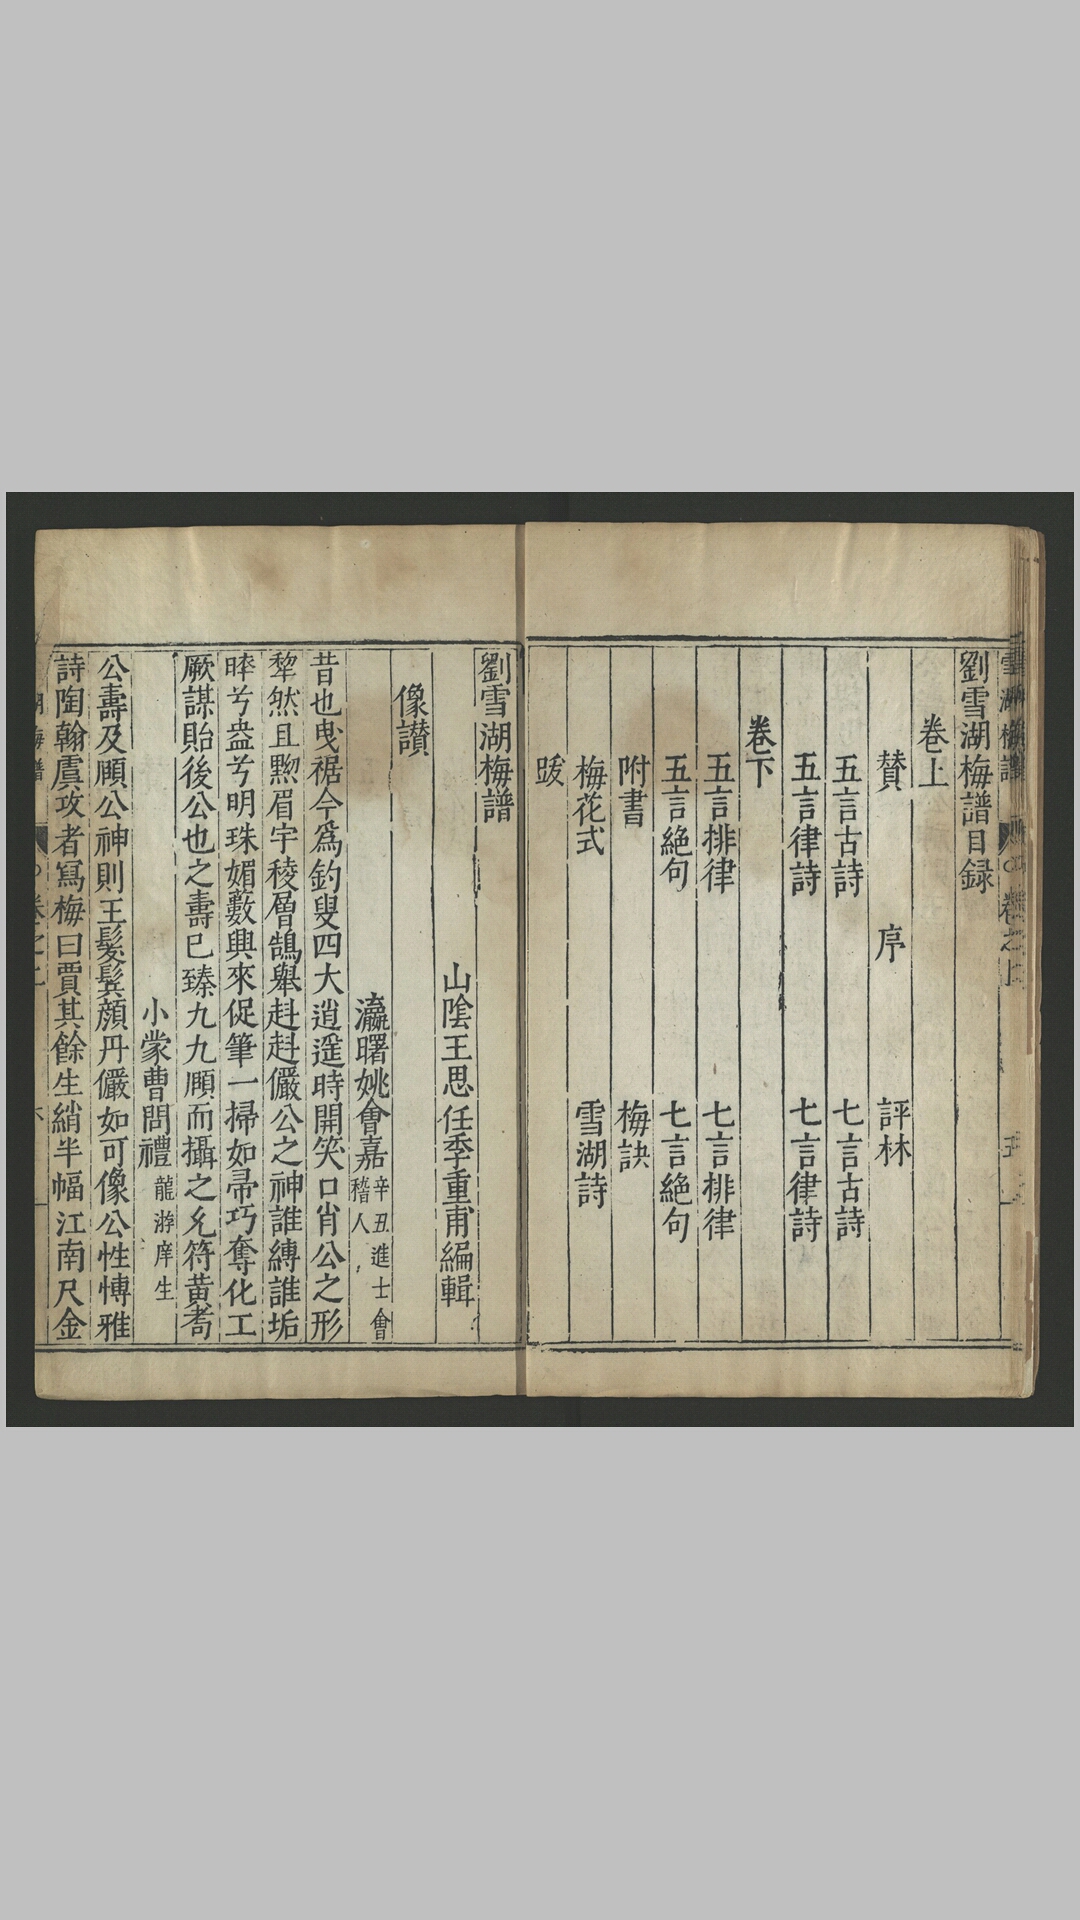 劉雪湖梅譜目録
卷上
賛 序 評林
五言古詩 七言古詩
五言律詩 七言律詩
卷下
五言排律 七言排律
五言絕句 七言絕句
附書 梅訣
梅花式 雪湖詩
跋
劉雪湖梅譜
山陰王思任季重甫編輯
像讃
瀛曙姚會嘉辛丑進士會稽人
昔也曳裾今爲釣叟四大逍遥時開笑口肖公之形
犂然且黝眉宇稜層鵠舉赳赳儼公之神誰縛誰垢
睟兮盎兮明珠媚藪興來促筆一掃如帚巧奪化工
厥謀貽後公也之壽已臻九九願而攝之允符黄耇
小蒙曹問禮龍游庠生
公壽及願公神則王髮鬓顔丹儼如可像公性愽雅
詩陶翰虞攻者寫梅曰賈其餘生綃半幅江南尺金